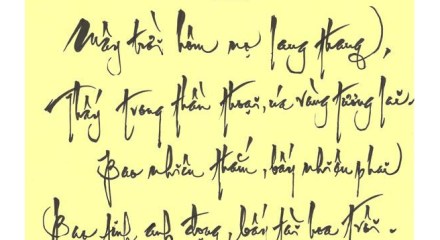 Mây trời hôm nọ lang thang,
Thấy trong thần thoại, úa vàng tương lai.
Bao nhiêu thắm, bấy nhiêu phai
Bao tình anh đọng, bấy tài hoa trôi.